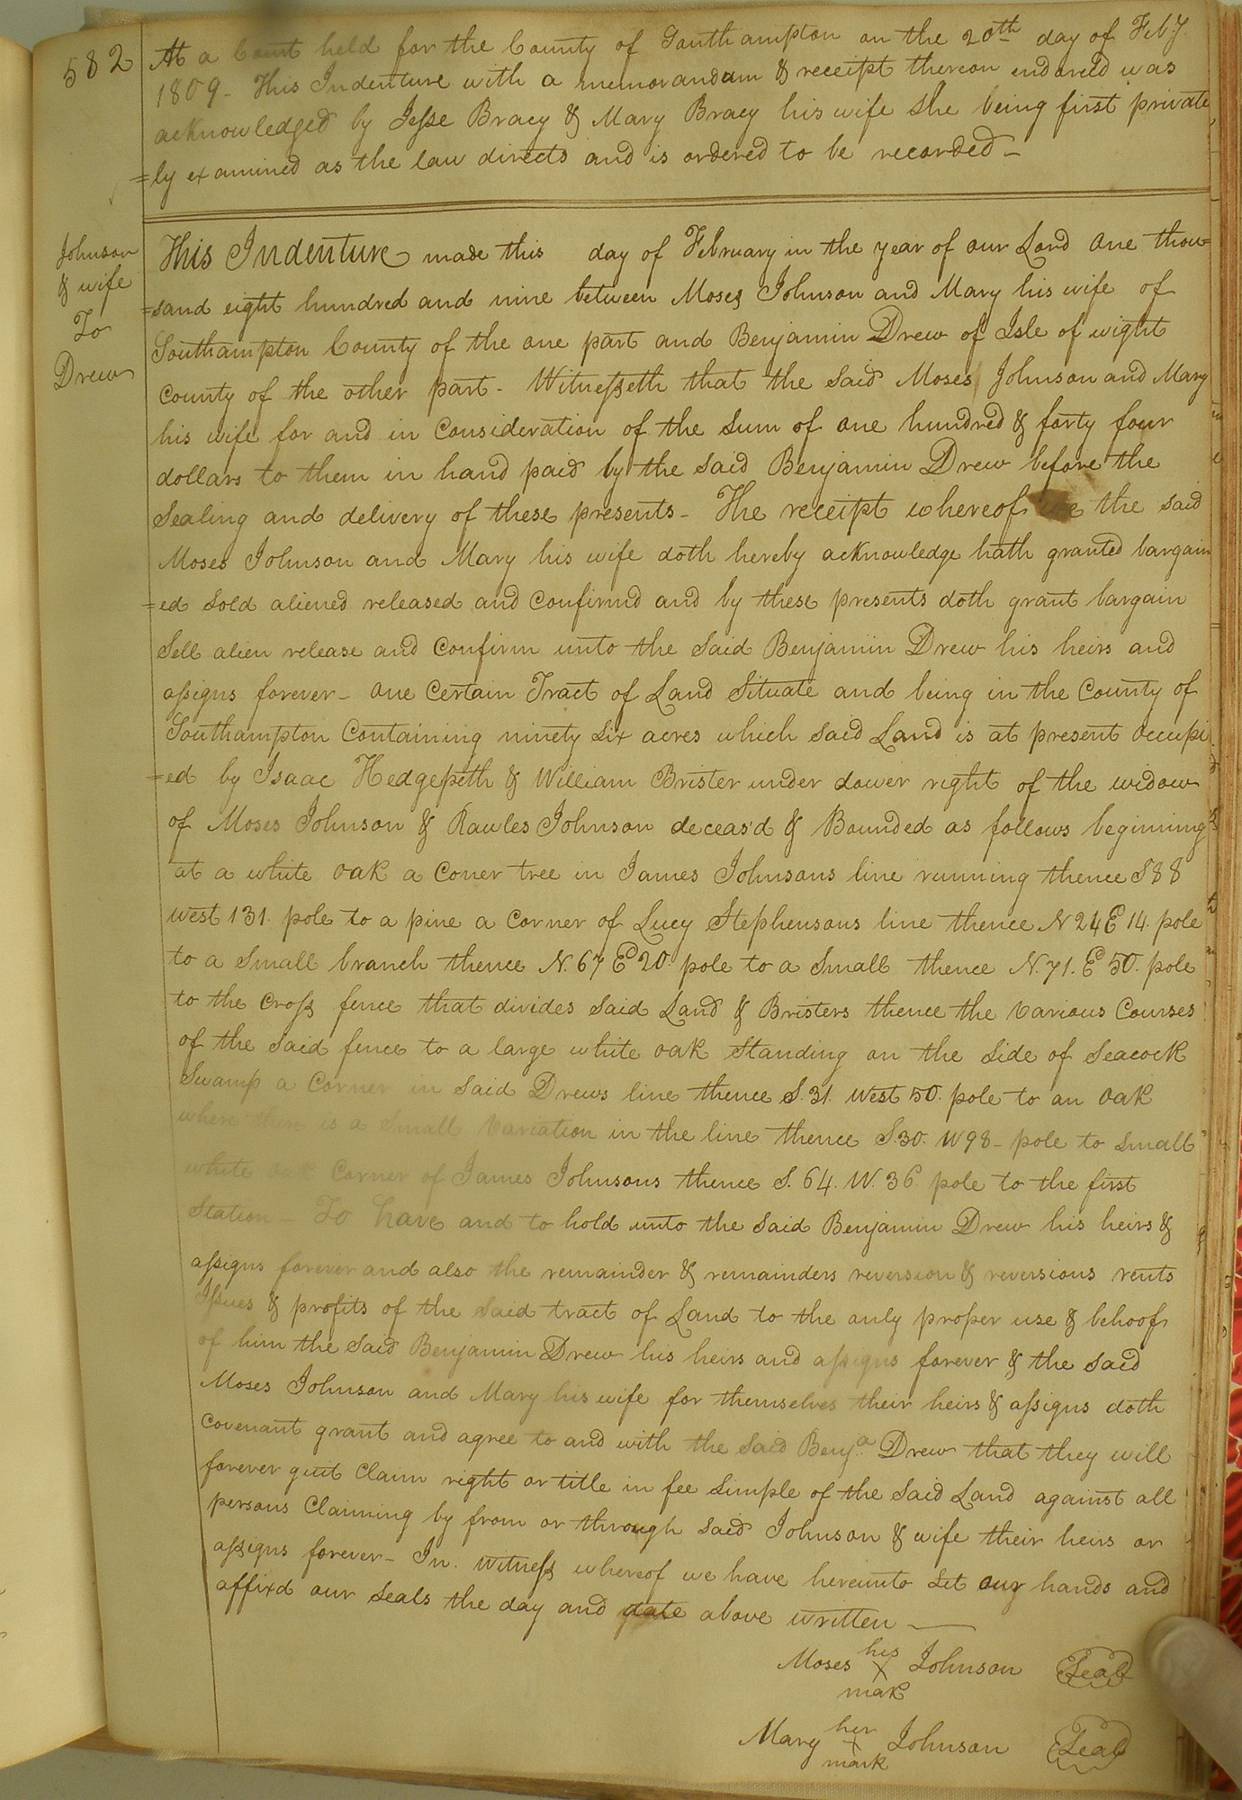 582
At a Court held for the County of Southampton on the 20th day of Feby.
1809 - This Indenture with a memorandum & receipt thereon endorced was
acknowledged by Jesse Bracy & Mary Bracy his wife she being first private
=ly examined as the law directs and is ordered to be recorded -
Johnson
& wife
To
Drew
This Indenture made this day of February in the year of our Lord one thou
=sand eight hundred and nine between Moses Johnson and Mary his wife of
Southampton County of the one part and Benjamin Drew of Isle of wight
County of the other part - Witnesseth that the said Moses Johnson and Mary
his wife for and in Consideration of the Sum of one hundred & forty four
dollars to them in hand paid by the said Benjamin Drew before the
Sealing and delivery of these presents - The receipt whereof the said
Moses Johnson and Mary his wife doth hereby acknowledge hath granted bargain
=ed sold aliened released and Confirmd and by these presents doth grant bargain
Sell alien release and Confirm unto the said Benjamin Drew his heirs and
assigns forever - one Certain Tract of Land Situate and being in the County of
Southampton Containing ninety six acres which said Land is at present occupi
=ed by Isaac Hedgepeth & William Brister under dower right of the widow
of Moses Johnson & Rawles Johnson deceas'd & Bounded as follows beginning
at a white oak a Coner tree in James Johnsons line running thence S88
west 131. pole to a pine a Corner of Lucy Stephensons line thence N24E 14. pole
to a Small branch thence N.67 E 20. pole to a Small thence N.71. E 50. pole
to the Cross fence that divides said Land & Bristers thence the various Courses
of the said fence to a large white oak Standing on the side of Seacock
Swamp a Corner in said Drews line thence S.31. West 50. pole to an oak
where there is a Small Variation in the line thence S30. W98 - pole to small
white oak Corner of James Johnsons thence S.64. W.36 pole to the first
Station - To have and to hold unto the said Benjamin Drew his heirs &
assigns forever and also the remainder & remainders reversion & reversions rents
Issues & profits of the said tract of Land to the only proper use & behoof
of him the said Benjamin Drew his heirs and assigns forever & the said
Moses Johnson and Mary his wife for themselves their heirs & assigns doth
Covenant grant and agree to and with the said Benja. Drew that they will
forever quit Claim right or title in fee simple of the said Land against all
persons Claiming by from or through said Johnson & wife their heirs or
assigns forever - In. witness whereof we have hereunto set our hands and
affixd our seals the day and date above written -
his
Moses X Johnson Seal
mak
her
Mary + Johnson Seal
mark